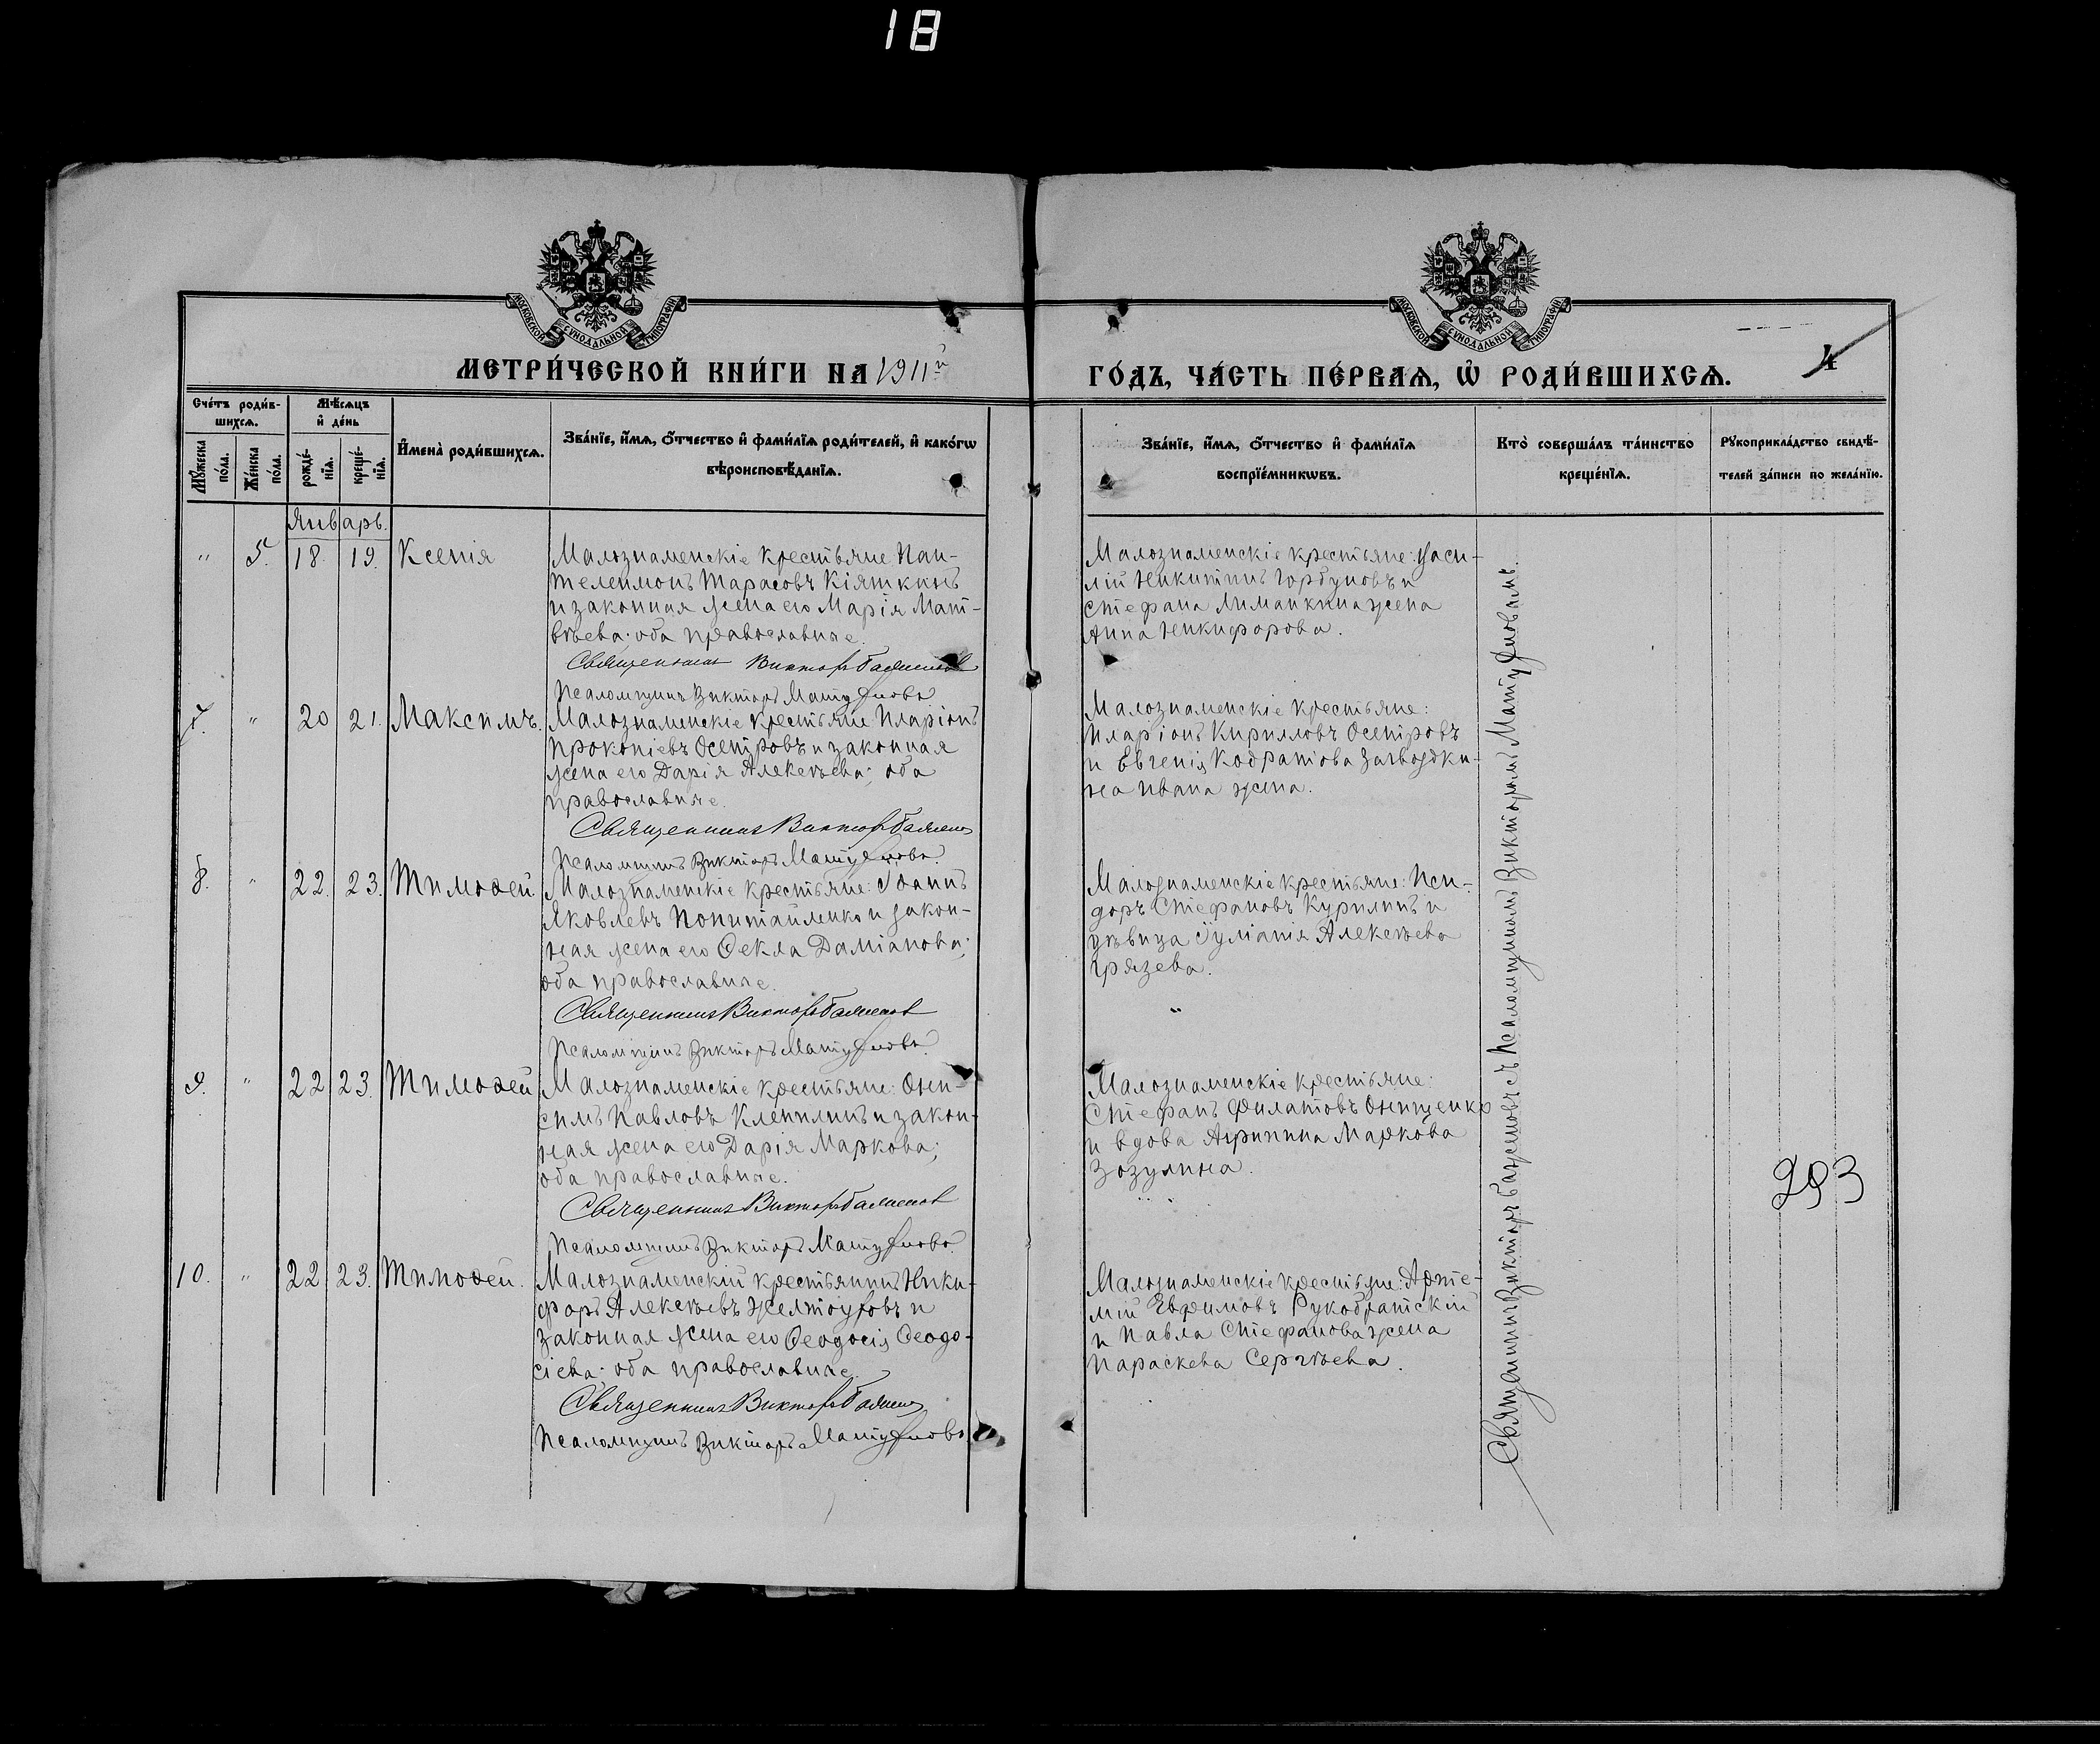 18
МОСКОВСКОЙ СѴНОДАЛЬНОЙ ТИПОГРАФІИ
МОСКОВСКОЙ СѴНОДАЛЬНОЙ ТИПОГРАФІИ
МЕТРИ́ЧЕСКОЙ КНИ́ГИ НА 1911й
ГО́ДЪ, ЧА́СТЬ ПЕ́РВАѦ, Ѡ РОДИ́ВШИХСѦ.
4
Сче́тъ роди́в-
шихсѧ.
Мꙋ́жеска по́ла.
Же́нска по́ла.
Мѣ́сѧцъ
и҆ де́нь
рожде́-
нїѧ.
креще́-
нїѧ.
И҆мена̀ роди́вшихсѧ.
Зва́нїе, и҆́мѧ, ѻ҆́тчество и҆ фами́лїѧ роди́телей, и҆ како́гѡ
вѣроисповѣ́данїѧ.
Зва́нїе, и҆́мѧ, ѻ҆́тчество и҆ фами́лїѧ
воспрїе́мникѡвъ.
Кто̀ соверша́лъ та́инство
креще́нїѧ.
Рꙋкоприкла́дство свидѣ́-
телей за́писи по жела́нїю.
Январь.
" 5. 18. 19. Ксенія
Малознаменскіе крестьяне Пан-
телеимонъ Тарасовъ Кіяткинъ
и законная жена его Марія Мат-
вѣева; оба православные.
Священникъ Викторъ Баженовъ
Псаломщикъ Викторъ
Малознаменскіе крестьяне: Васи-
лій Никитинъ Горбуновъ и
Стефана Лиманкина жена
Анна Никифорова.
7. " 20 21. Максимъ.
Малознаменскіе крестьяне Иларіонъ
Прокопіевъ Осетровъ и законная
жена его Дарія Алексѣева; оба
православные.
Священникъ Викторъ Баженовъ
Псаломщикъ Викторъ
Малознаменскіе крестьяне:
Иларіонъ Кирилловъ Осетровъ
и Евгенія Кодратова Загвоздки-
на Ивана жена.
8. " 22. 23. Тимоѳей.
Малознаменскіе крестьяне: Іоаннъ
Яковлевъ и закон-
ная жена его Ѳекла Даміанова;
оба православные.
Священникъ Викторъ Баженовъ
Псаломщикъ Викторъ
Малознаменскіе крестьяне: Иси-
доръ Стефановъ Курилинъ и
дѣвица Іуліанія Алексѣева
Грязева.
9. " 22 23. Тимоѳей
Малознаменскіе крестьяне: Они-
симъ Павловъ и закон-
ная жена его Дарія Маркова;
оба православные.
Священникъ Викторъ Баженовъ
Псаломщикъ Викторъ
Малознаменскіе крестьяне:
Стефанъ Филатовъ Онищенко
и вдова Агрипина Маркова
Зозулина.
293
10. " 22 23. Тимоѳей.
Малознаменскій крестьянинъ Ники-
форъ Алексѣевъ Желтоуховъ и
законная жена его Ѳеодосія Ѳеодо-
сіева; оба православные.
Священникъ Викторъ Баженовъ
Псаломщикъ Викторъ
Малознаменскіе крестьяне: Арте-
мій Евфимовъ Рукобратскій
и Павла Стефанова жена
Параскева Сергѣева.
Священникъ Викторъ Баженовъ съ Псаломщикомъ Викторомъ